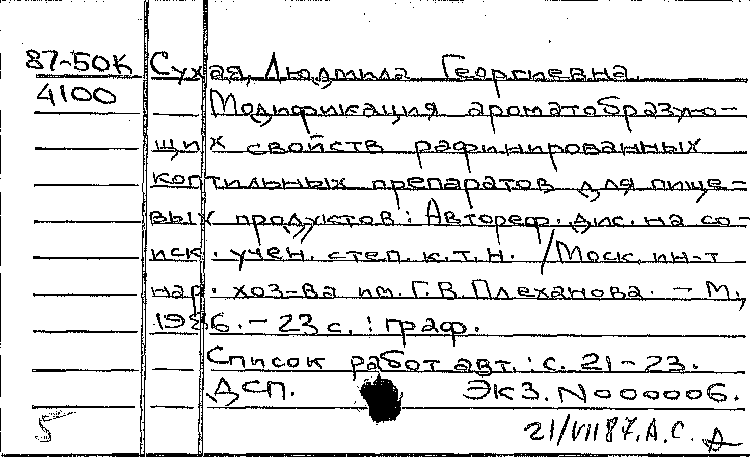 87-50К Сухая, Людмила Георгиевна.
4100 Модификация ароматобразую-
щих свойств рафинированных
коптильных препаратов для пище-
вых продуктов: Автореф. дис. на со-
иск. учен. степ. к.т.н. /Моск. ин-т
нар. хоз-ва им. Г.В. Плеханова. - М.,
1986. - 23 с.: граф.
Список работ авт.: с. 21-23.
ДСП. Экз. N 000006.
5 21/VII 87. А.С.